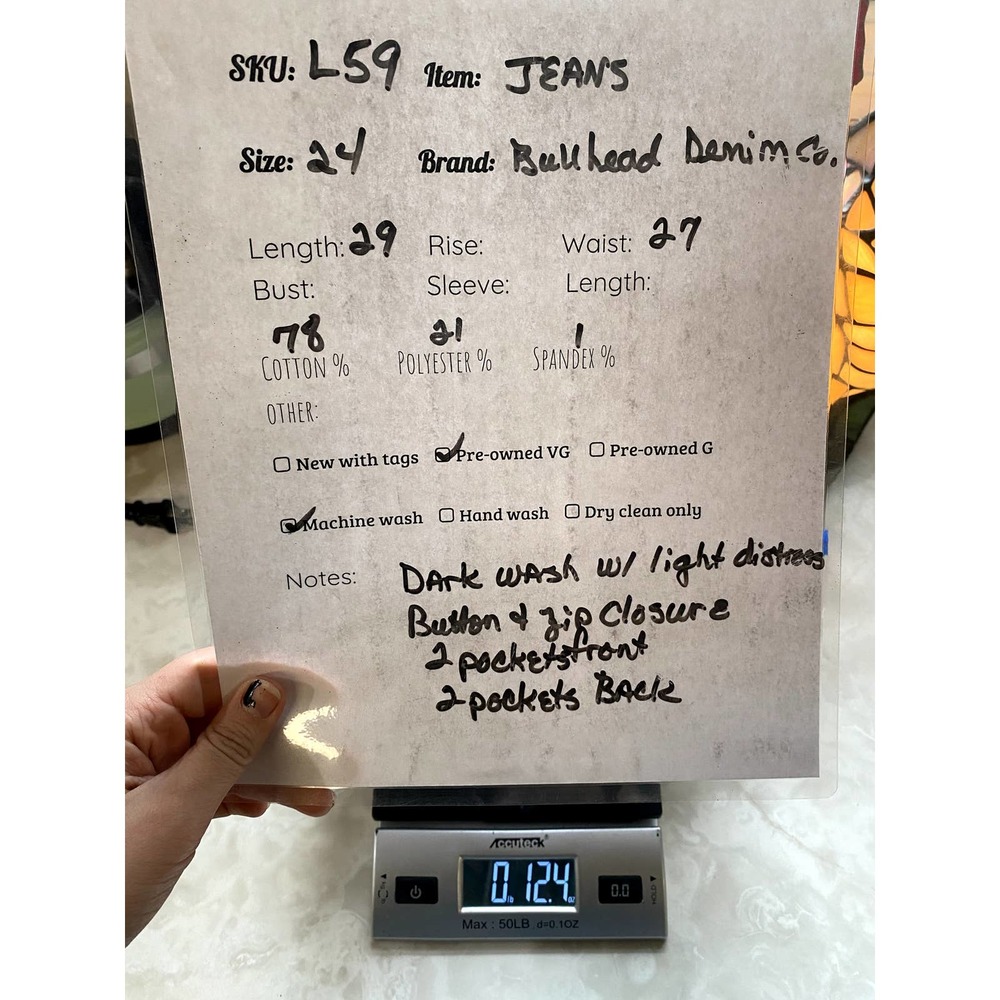 SKU: L59 Item: JEANS
Size: 24 Brand: Bullhead Denim Co.
Length: 29 Rise: Waist: 27
Bust: Sleeve: Length:
78 21 1
COTTON % POLYESTER % SPANDEX %
OTHER:
New with tags Pre-owned VG Pre-owned G
Machine wash Hand wash Dry clean only
Notes: DArk wAsh w/ light distress
Button & zip Closure
2 pockets front
2 pockets BAck
Accuteck
0 lb 12.4 oz
0.0
HOLD
Max : 50LB d=0.1OZ